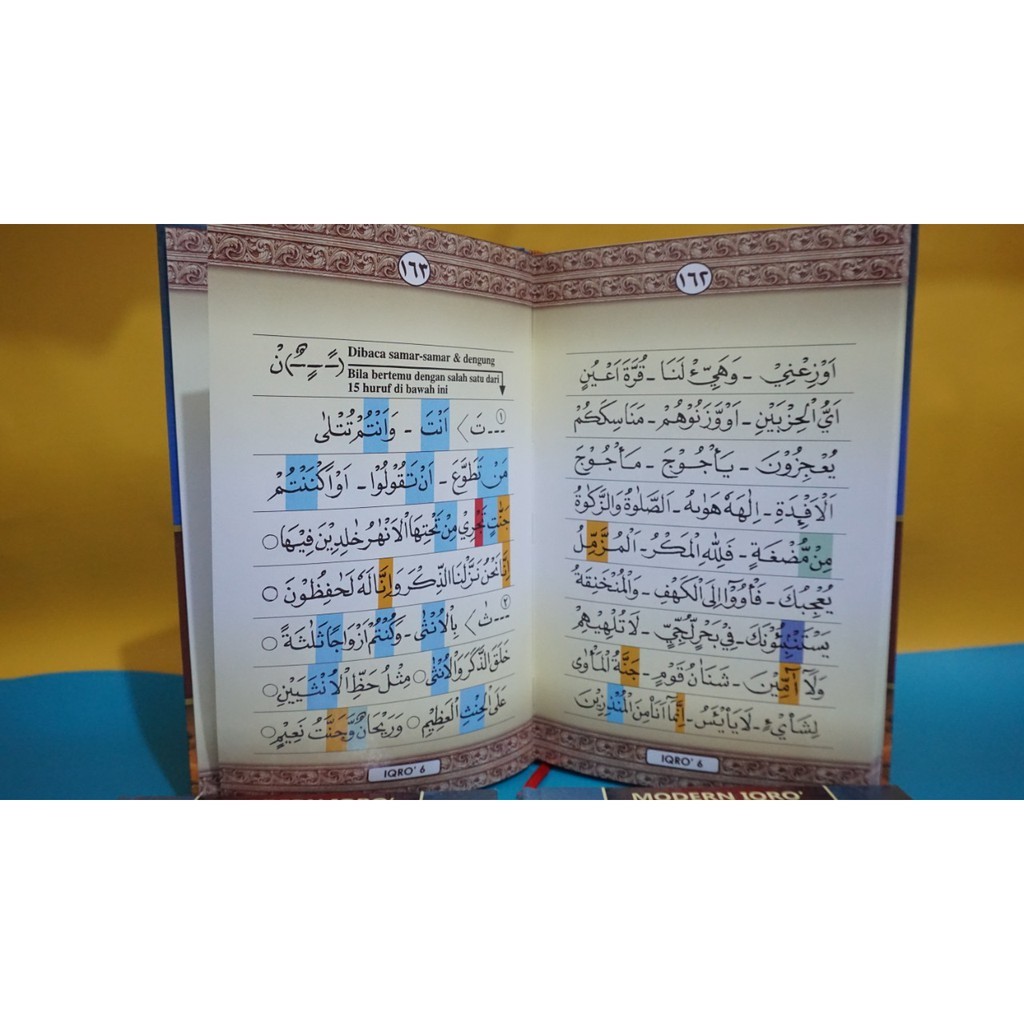 ١٦٢
اَوْزِعْنِيْ - وَهَيِّءْ لَنَا - قُرَّةَ اَعْيُنٍ
اَيُّ الْحِزْبَيْنِ - اَوْ وَّزَنُوْهُمْ - مَنَاسِكَكُمْ
يُعْجِزُوْنَ - يَأْجُوْجَ - مَأْجُوْجَ
اَلْاَفْـِٕدَةِ - اِلٰهَهٗ هَوٰىهُ - الصَّلٰوةُ وَالزَّكٰوةُ
مِنْ مُّضْغَةٍ - فَلِلّٰهِ الْمَكْرُ - الْمُزَّمِّلُ
يُعْجِبُكَ - فَأْوُوْٓا اِلَى الْكَهْفِ - وَالْمُنْخَنِقَةُ
يَسْتَنْبِئُوْنَكَ - فِيْ بَحْرٍ لُّجِّيٍّ - لَا تُلْهِيْهِمْ
وَلَآ اٰۤمِّيْنَ - شَنَاٰنُ قَوْمٍ - جَنَّةُ الْمَأْوٰى
لِشَا۟يْءٍ - لَا يَا۟يْـَٔسُ - اِنَّمَآ اَنَا۠ مِنَ الْمُنْذِرِيْنَ
IQRO' 6
١٦٣
(ـًـ ـٍـ ـٌـ) نْ
Dibaca samar-samar & dengung
Bila bertemu dengan salah satu dari
15 huruf di bawah ini
١ ---تَ > اَنْتَ - وَاَنْتُمْ تُتْلٰى
مَنْ تَطَوَّعَ - اَنْ تَقُوْلُوْا - اَوْ اَكْنَنْتُمْ
جَنّٰتٍ تَجْرِيْ مِنْ تَحْتِهَا الْاَنْهٰرُ خٰلِدِيْنَ فِيْهَا ○
اِنَّا نَحْنُ نَزَّلْنَا الذِّكْرَ وَاِنَّا لَهٗ لَحٰفِظُوْنَ ○
٢ ---ثٰ > بِالْاُنْثٰى - وَكُنْتُمْ اَزْوَاجًا ثَلٰثَةً ○
خَلَقَ الذَّكَرَ وَالْاُنْثٰى ○ مِثْلُ حَظِّ الْاُنْثَيَيْنِ ○
عَلَى الْحِنْثِ الْعَظِيْمِ ○ وَرَيْحَانٌ وَّجَنَّتُ نَعِيْمٍ ○
IQRO' 6
MODERN IQRO'